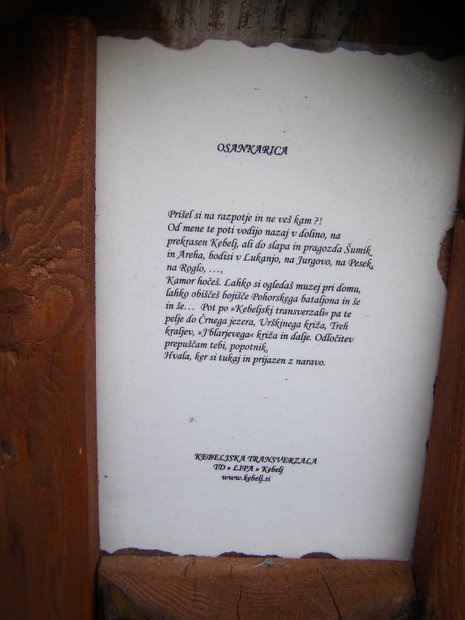 OSANKARICA
Prišel si na razpotje in ne veš kam ?!
Od mene te poti vodijo nazaj v dolino, na
prekrasen Kebelj, ali do slapa in pragozda Šumik
in Areha, bodisi v Lukanjo, na Jurgovo, na Pesek,
na Roglo, …,
Kamor hočeš. Lahko si ogledaš muzej pri domu,
lahko obiščeš bojišče Pohorskega bataljona in še
in še… Pot po »Kebeljski transverzali« pa te
pelje do Črnega jezera, Urškinega križa, Treh
kraljev, »J'blarjevega« križa in dalje. Odločitev
prepuščam tebi, popotnik.
Hvala, ker si tukaj in prijazen z naravo.
KEBELJSKA TRANSVERZALA
TD » LIPA » Kebelj
www.kebelj.si